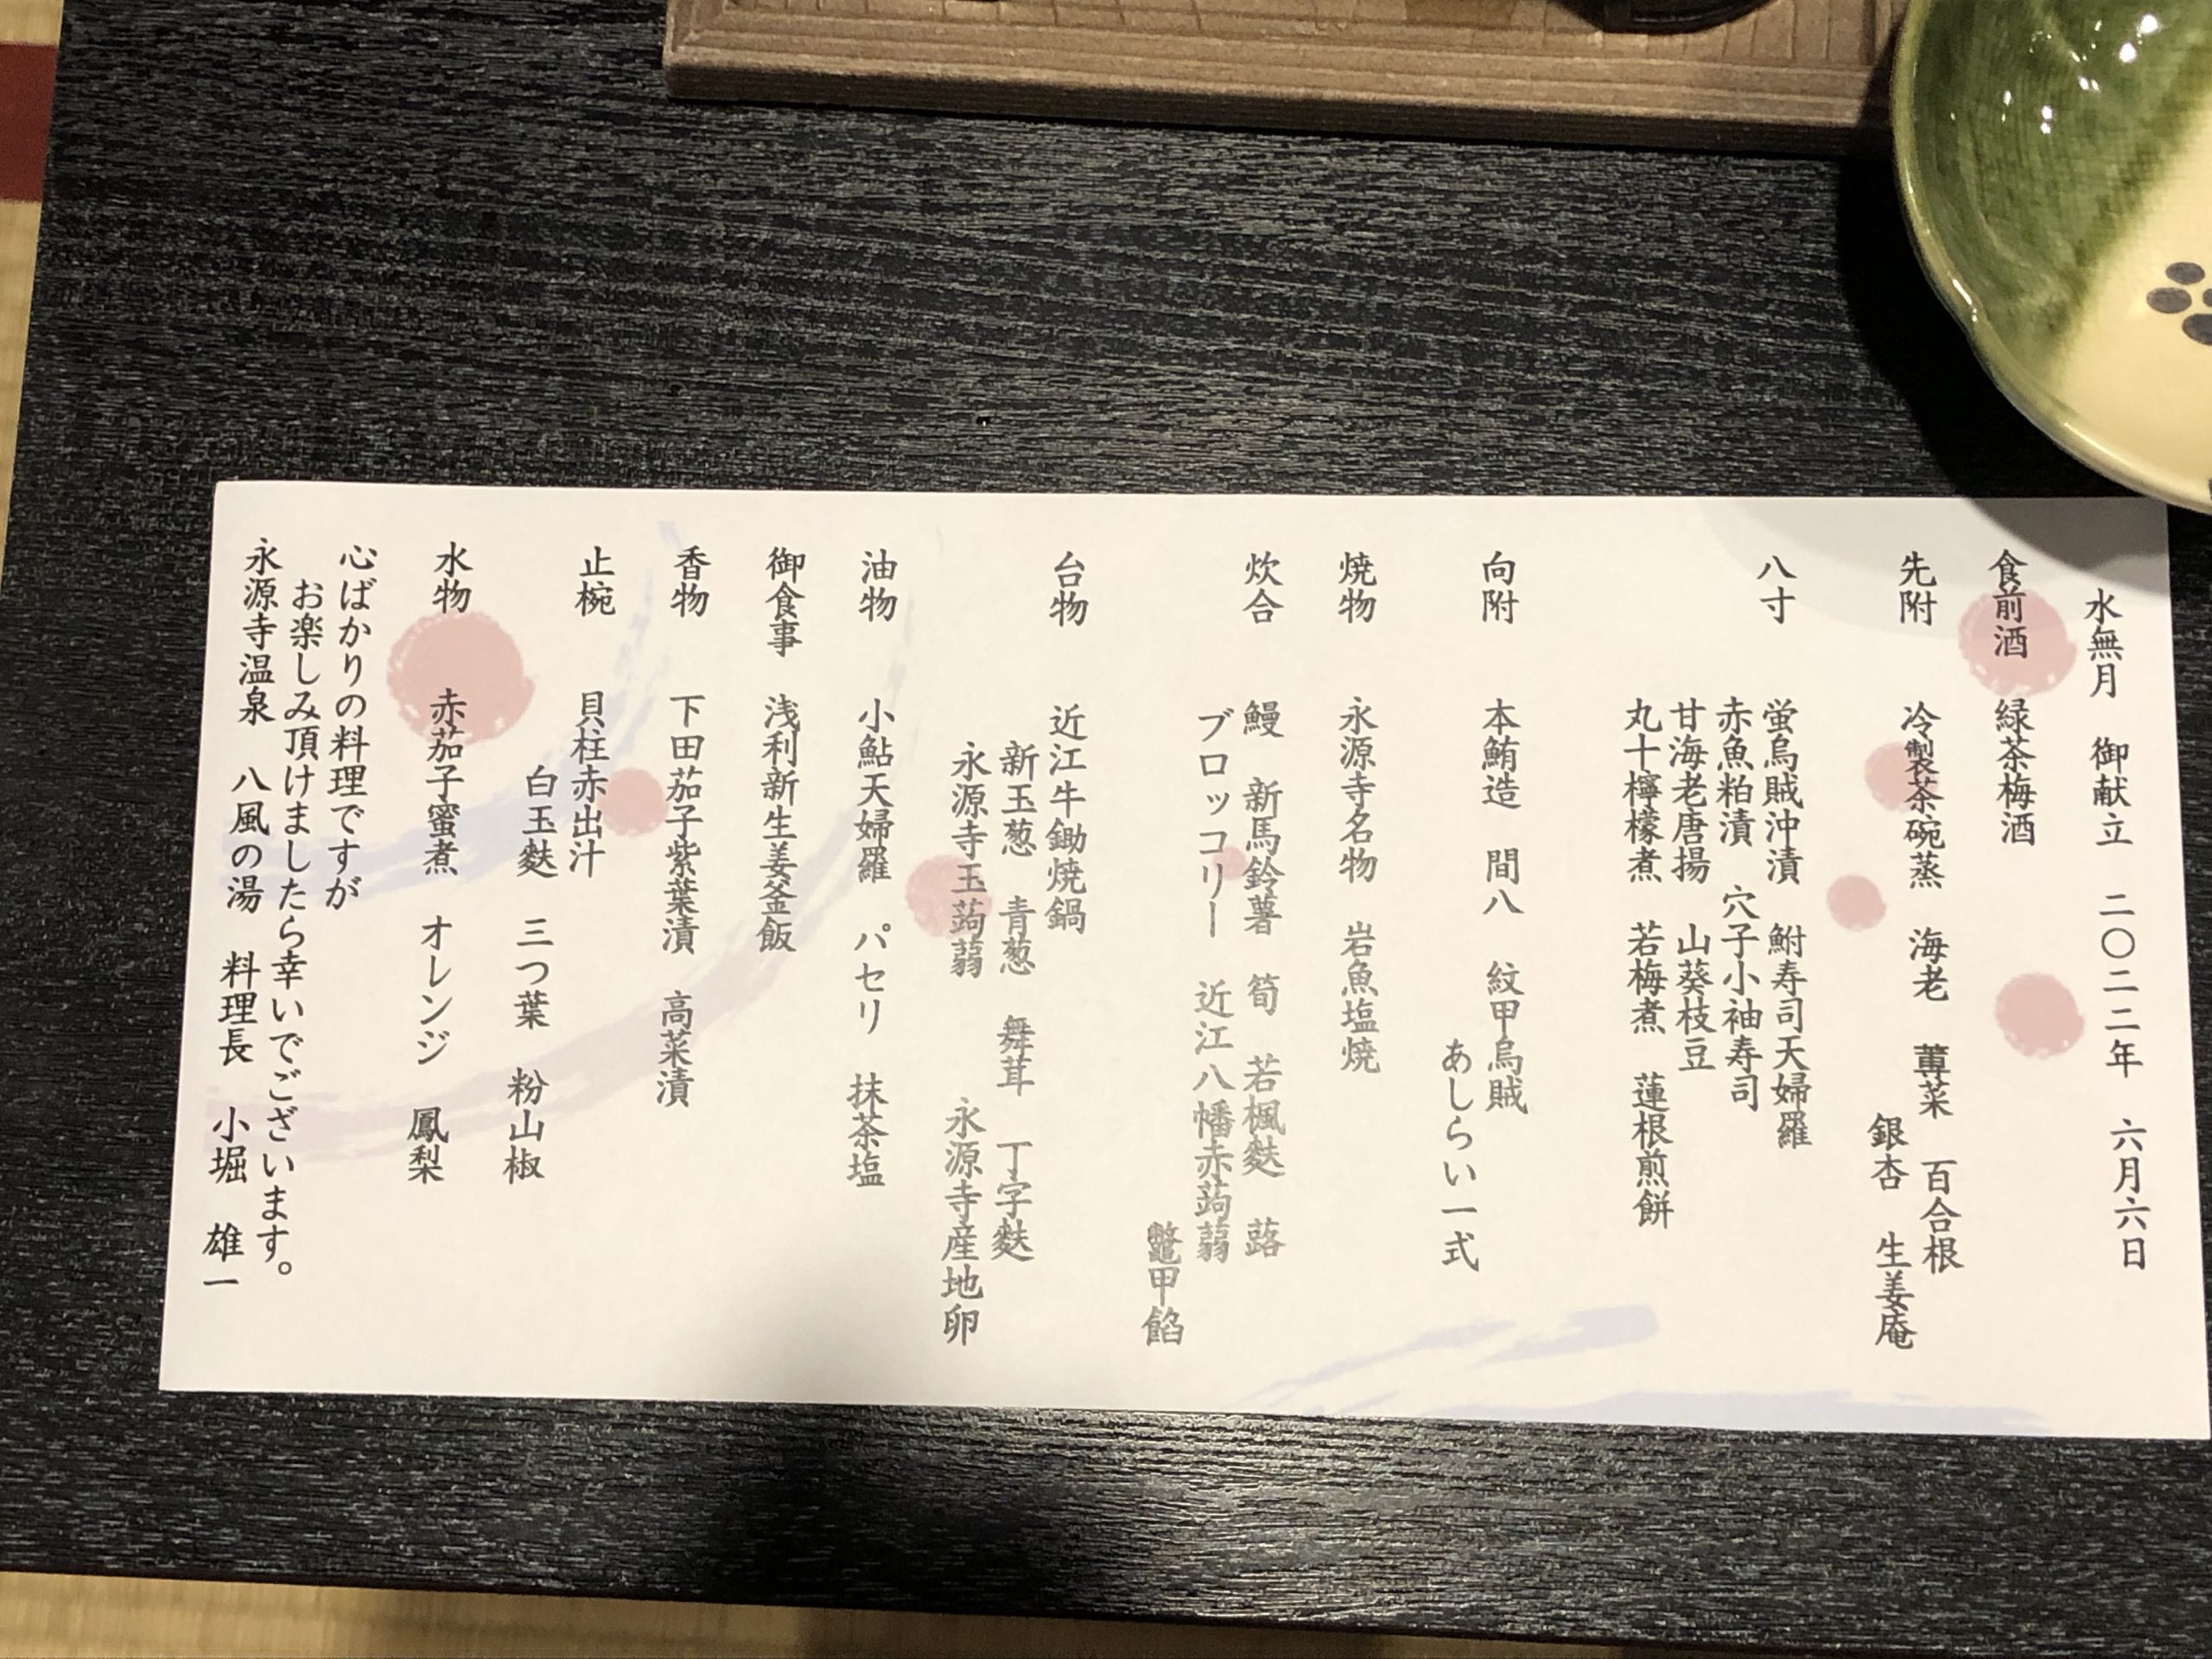 水無月　御献立　二〇二二年　六月六日
食前酒　緑茶梅酒
先附　冷製茶碗蒸　海老　蓴菜　百合根
銀杏　生姜庵
八寸　蛍烏賊沖漬　鮒寿司天婦羅
赤魚粕漬　穴子小袖寿司
甘海老唐揚　山葵枝豆
丸十檸檬煮　若梅煮　蓮根煎餅
向附　本鮪造　間八　紋甲烏賊
あしらい一式
焼物　永源寺名物　岩魚塩焼
炊合　鰻　新馬鈴薯　筍　若楓麩　蕗
ブロッコリー　近江八幡赤蒟蒻
鼈甲餡
台物　近江牛鋤焼鍋
新玉葱　青葱　舞茸　丁字麩
永源寺玉蒟蒻　永源寺産地卵
油物　小鮎天婦羅　パセリ　抹茶塩
御食事　浅利新生姜釜飯
香物　下田茄子紫葉漬　高菜漬
止椀　貝柱赤出汁
白玉麩　三つ葉　粉山椒
水物　赤茄子蜜煮　オレンジ　鳳梨
心ばかりの料理ですが
お楽しみ頂けましたら幸いでございます。
永源寺温泉　八風の湯　料理長　小堀　雄一